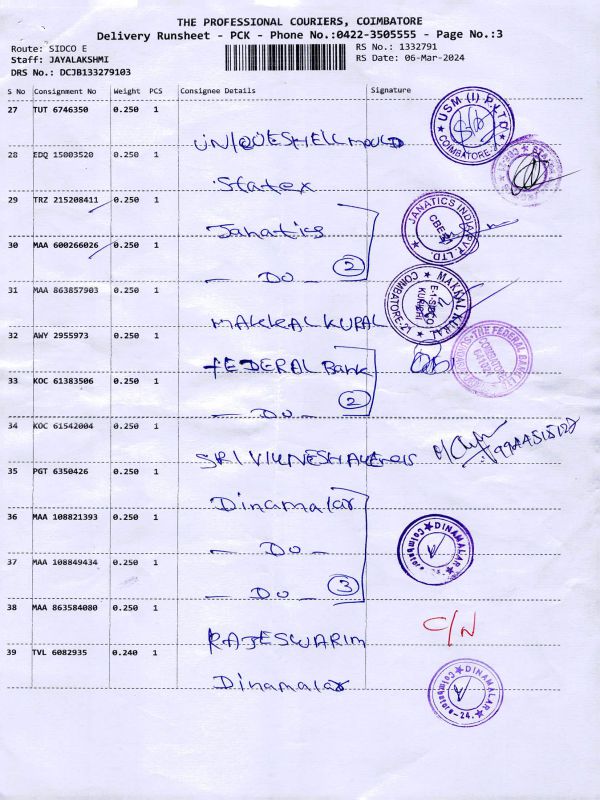 THE PROFESSIONAL COURIERS, COIMBATORE
Delivery Runsheet - PCK - Phone No.:0422-3505555 - Page No.:3
Route: SIDCO E
RS No.: 1332791
Staff: JAYALAKSHMI
RS Date: 06-Mar-2024
DRS No.: DCJB133279103
S No Consignment No Weight PCS Consignee Details Signature
27 TUT 6746350 0.250 1
UNIQUESHELLMOULD
USM (I) P. LTD COIMBATORE-2
28 EDQ 15003520 0.250 1
Statex
29 TRZ 215208411 0.250 1
Janatics
JANATICS INDIA PVT. LTD.
CBE
30 MAA 600266026 0.250 1
— DO — 2
31 MAA 863857903 0.250 1
MAKKALKURAL
MAKKAL KURAL
COIMBATORE-21
32 AWY 2955973 0.250 1
FEDERAL Bank
THE FEDERAL BANK LTD
COIMBATORE
33 KOC 61383506 0.250 1
— DO — 2
34 KOC 61542004 0.250 1
9944515128
35 PGT 6350426 0.250 1
Dinamalar
36 MAA 108821393 0.250 1
— DO —
DINAMALAR
Coimbatore
37 MAA 108849434 0.250 1
— DO — 3
38 MAA 863584080 0.250 1
RAJESWARIM
C/N
39 TVL 6082935 0.240 1
Dinamalar
DINAMALAR
Coimbatore-24.